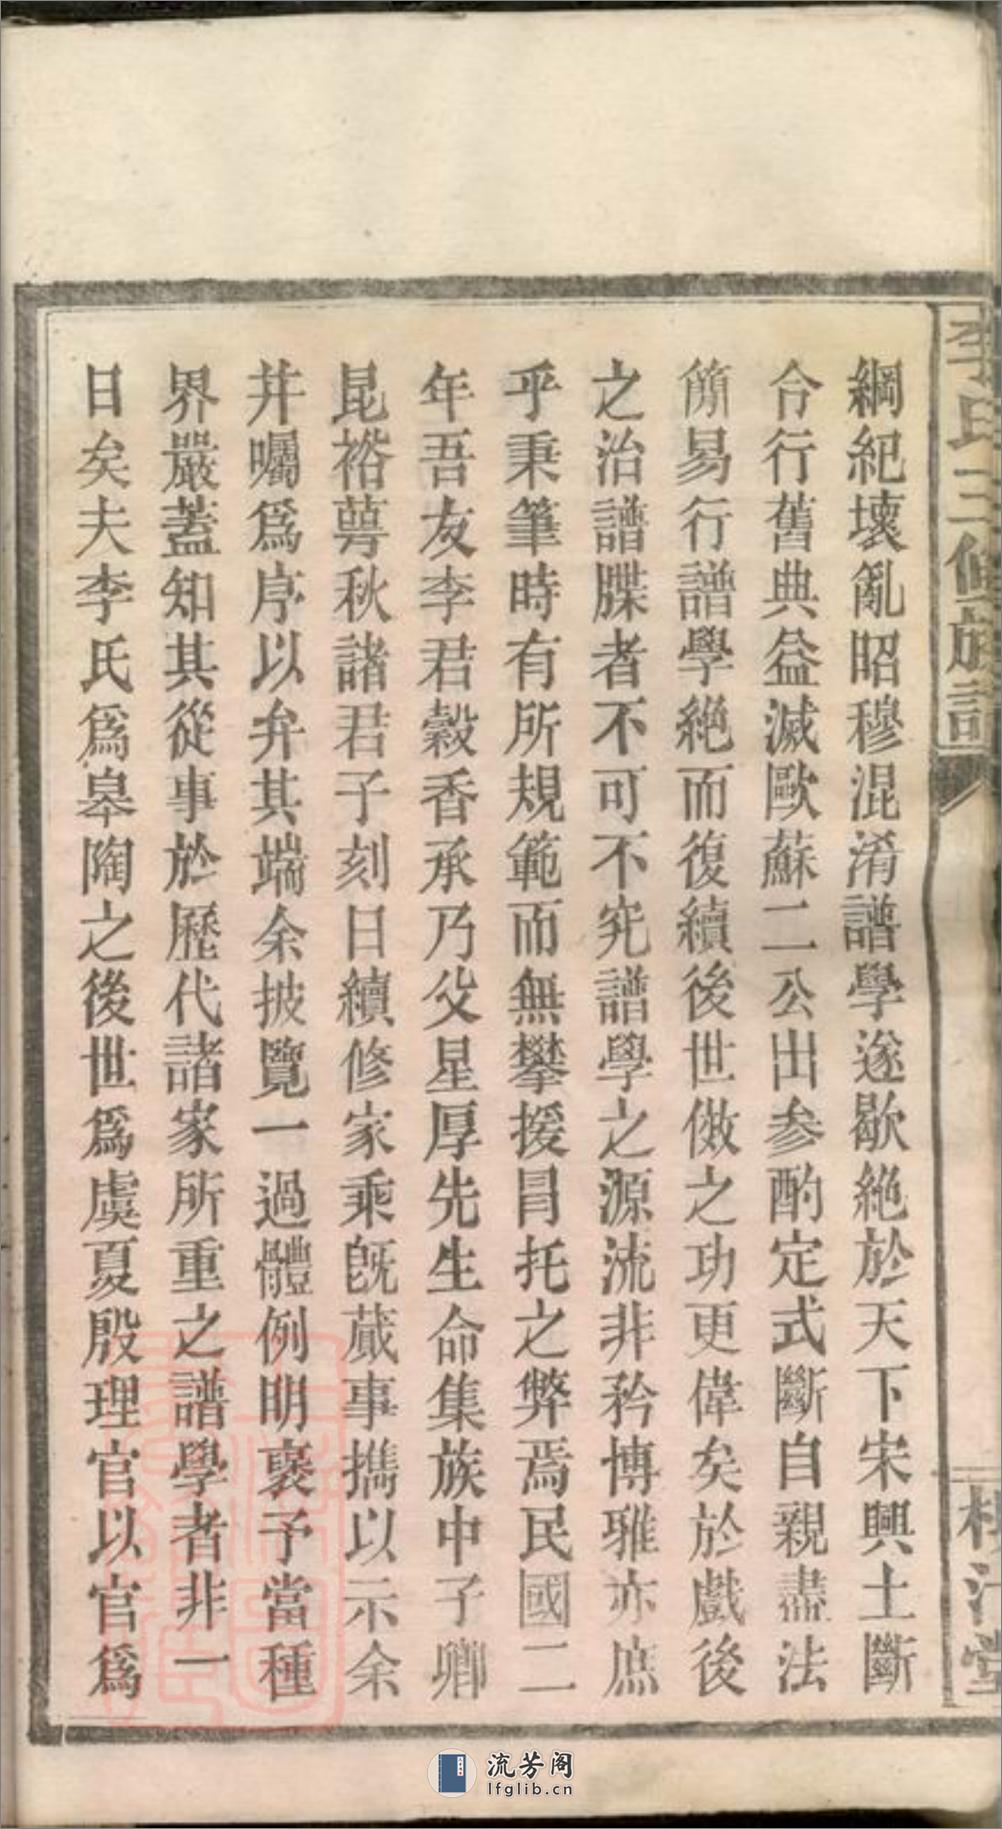 李氏三修族譜
綱紀壞亂昭穆混淆譜學遂歇絶於天下宋興土斷
合行舊典益滅歐蘇二公出参酌定式斷自親盡法
簡易行譜學絶而復續後世倣之功更偉矣於戲後
之治譜牒者不可不究譜學之源流非矜博雅亦庶
乎秉筆時有所規範而無攀援冒托之弊焉民國二
年吾友李君穀香承乃父星厚先生命集族中子卿
昆裕蕚秋諸君子刻日續修家乘旣蕆事擕以示余
井囑爲序以弁其端余披覽一過體例明襃予當種
界嚴蓋知其從事於歷代諸家所重之譜學者非一
日矣夫李氏爲皋陶之後世爲虞夏殷理官以官爲
流芳阁
lfglib.cn